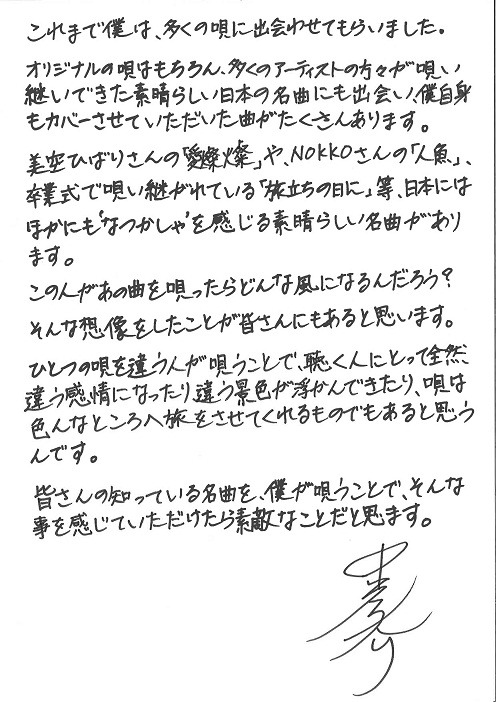 これまで僕は、多くの唄に出会わせてもらいました。
オリジナルの唄はもちろん、多くのアーティストの方々が唄い
継いできた素晴らしい日本の名曲にも出会い、僕自身
もカバーさせていただいた曲がたくさんあります。
美空ひばりさんの「愛燦燦」や、NOKKOさんの「人魚」、
卒業式で唄い継がれている「旅立ちの日に」等、日本には
ほかにも'なつかしゃ'を感じる素晴らしい名曲があり
ます。
この人があの曲を唄ったらどんな風になるんだろう?
そんな想像をしたことが皆さんにもあると思います。
ひとつの唄を違う人が唄うことで、聴く人にとって全然
違う感情になったり、違う景色が浮かんできたり、唄は
色んなところへ旅をさせてくれるものでもあると思う
んです。
皆さんの知っている名曲を、僕が唄うことで、そんな
事を感じていただけたら素敵なことだと思います。